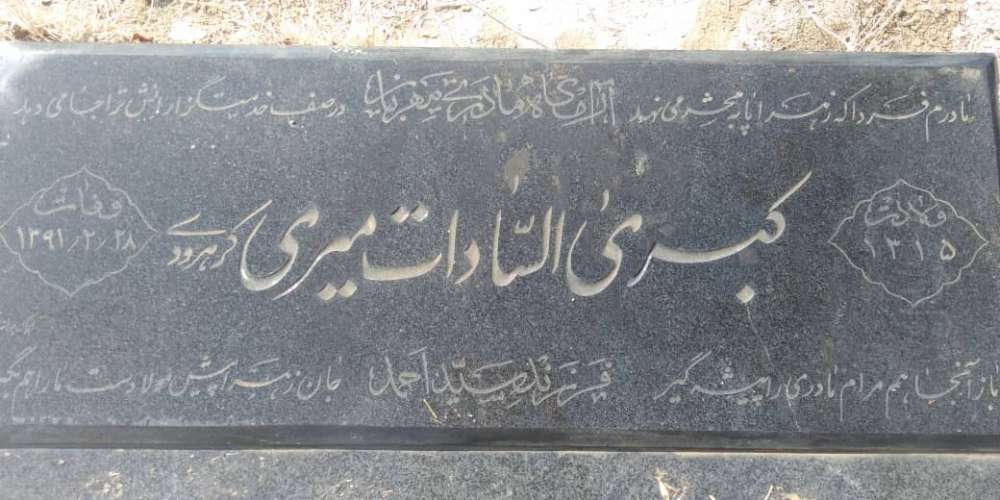 مادرم فردا که زهرا پا به محشر می نهد
آرامگاه مادری مهربان
در صف خدمتگزارانش ترا جا می دهد
ولادت
۱۳۱۵
کبری السّادات میری
کرهرودی
وفات
۱۳۹۱/۲/۲۸
باز آنجا هم مرام مادری را پیشه گیر
فرزند سیّد احمد
جان زهرا پیش مولا دست ما را هم بگیر